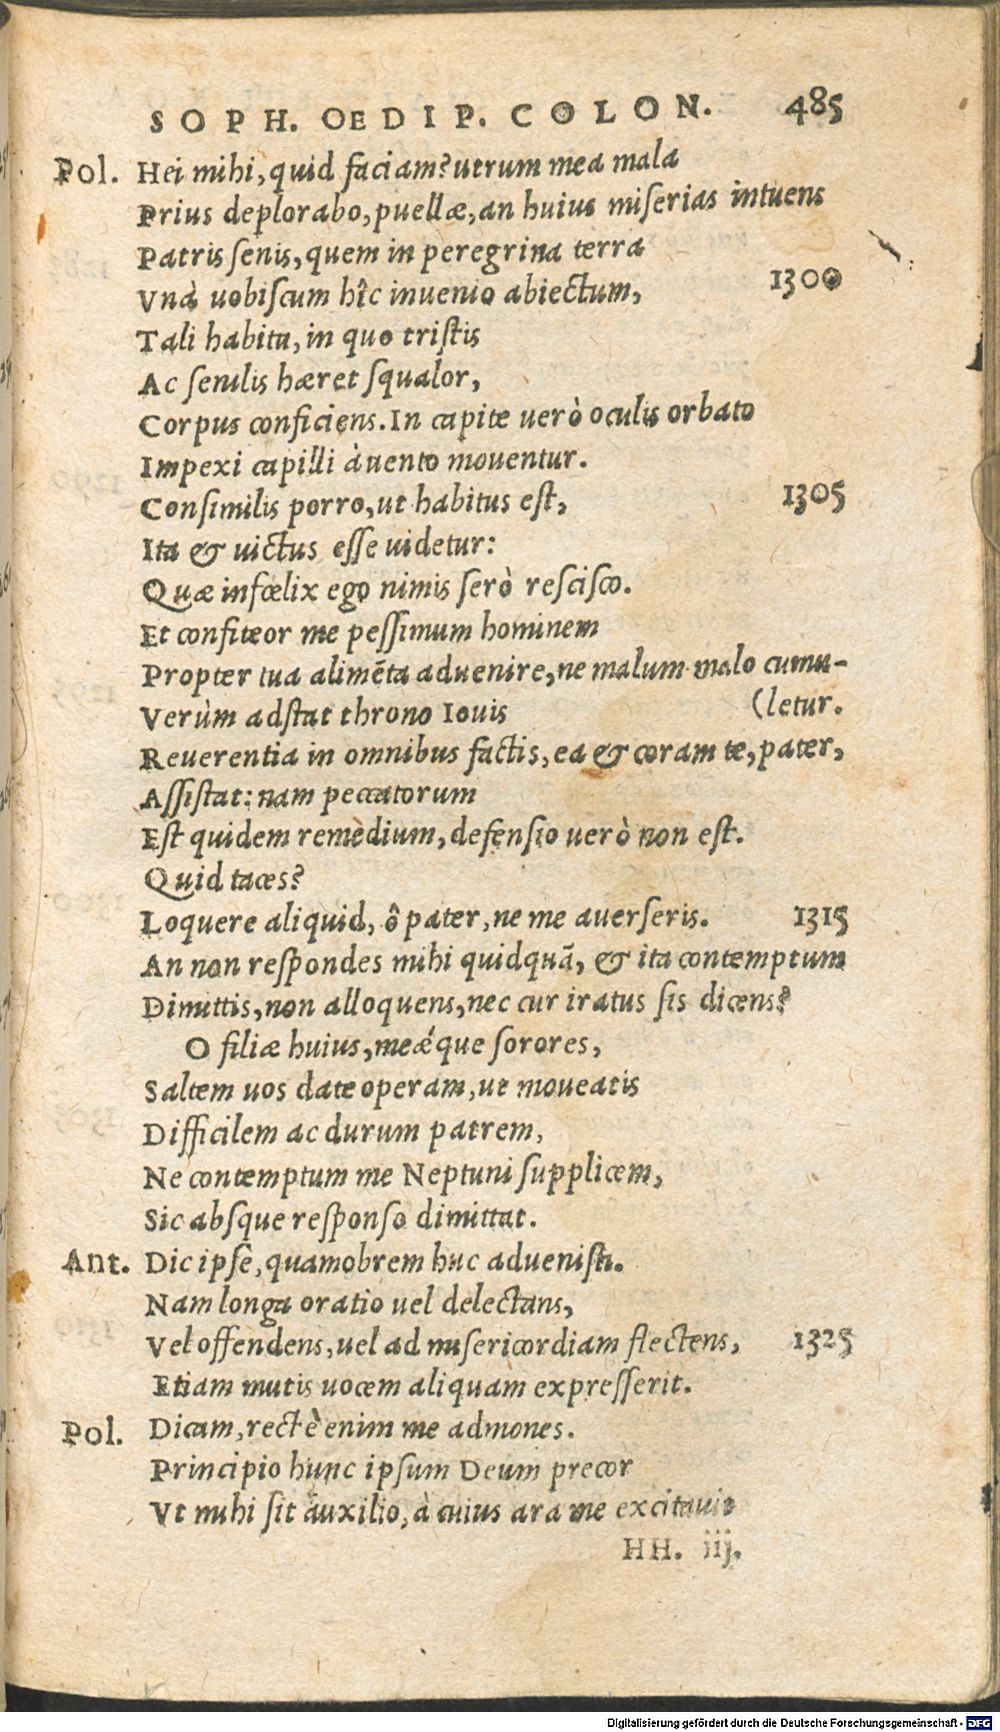 SOPH. OEDIP. COLON. 485
Pol. Hei mihi, quid faciam? utrum mea mala
Prius deplorabo, puellæ, an huius miserias intuens
Patris senis, quem in peregrina terra
Vnà uobiscum hîc inuenio abiectum, 1300
Tali habitu, in quo tristis
Ac senilis hæret squalor,
Corpus conficiens. In capite uerò oculis orbato
Impexi capilli à uento mouentur.
Consimilis porro, ut habitus est, 1305
Ita & uictus esse uidetur:
Quæ infœlix ego nimis serò rescisco.
Et confiteor me pessimum hominem
Propter tua alimẽta aduenire, ne malum malo cumu-
Verùm adstat throno Iouis (letur.
Reuerentia in omnibus factis, ea & coram te, pater,
Assistat: nam peccatorum
Est quidem remedium, defensio uerò non est.
Quid taces?
Loquere aliquid, ô pater, ne me auerseris. 1315
An non respondes mihi quidquã, & ita contemptum
Dimittis, non alloquens, nec cur iratus sis dicens?
O filiæ huius, meǽque sorores,
Saltem uos date operam, ut moueatis
Difficilem ac durum patrem,
Ne contemptum me Neptuni supplicem,
Sic absque responso dimittat.
Ant. Dic ipse, quamobrem huc aduenisti.
Nam longa oratio uel delectans,
Vel offendens, uel ad misericordiam flectens, 1325
Etiam mutis uocem aliquam expresserit.
Pol. Dicam, rectè enim me admones.
Principio hunc ipsum Deum precor
Vt mihi sit auxilio, à cuius ara me excitauit
HH. iij.
Digitalisierung gefördert durch die Deutsche Forschungsgemeinschaft - DFG